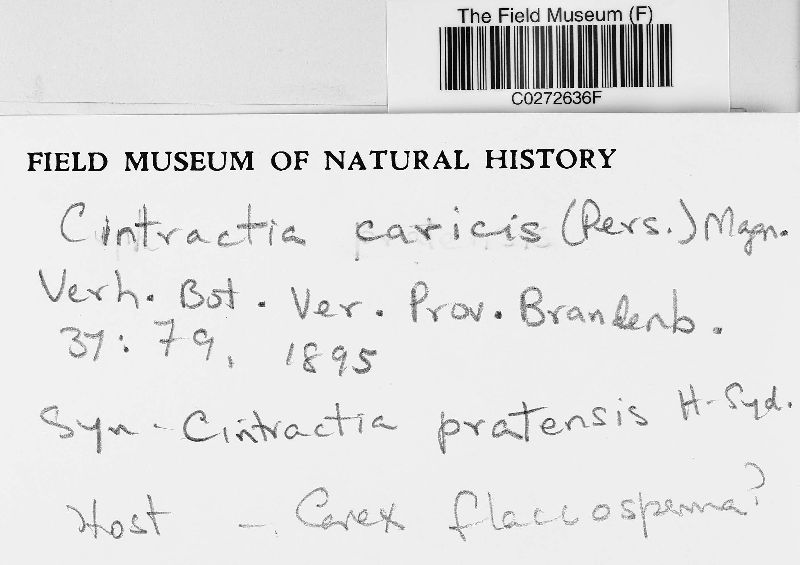 The Field Museum (F)
C0272636F
FIELD MUSEUM OF NATURAL HISTORY
Cintractia caricis (Pers.) Magn.
Verh. Bot. Ver. Prov. Brandenb.
37: 79, 1895
Syn - Cintractia pratensis H-Syd.
Host - Carex flaccosperma?